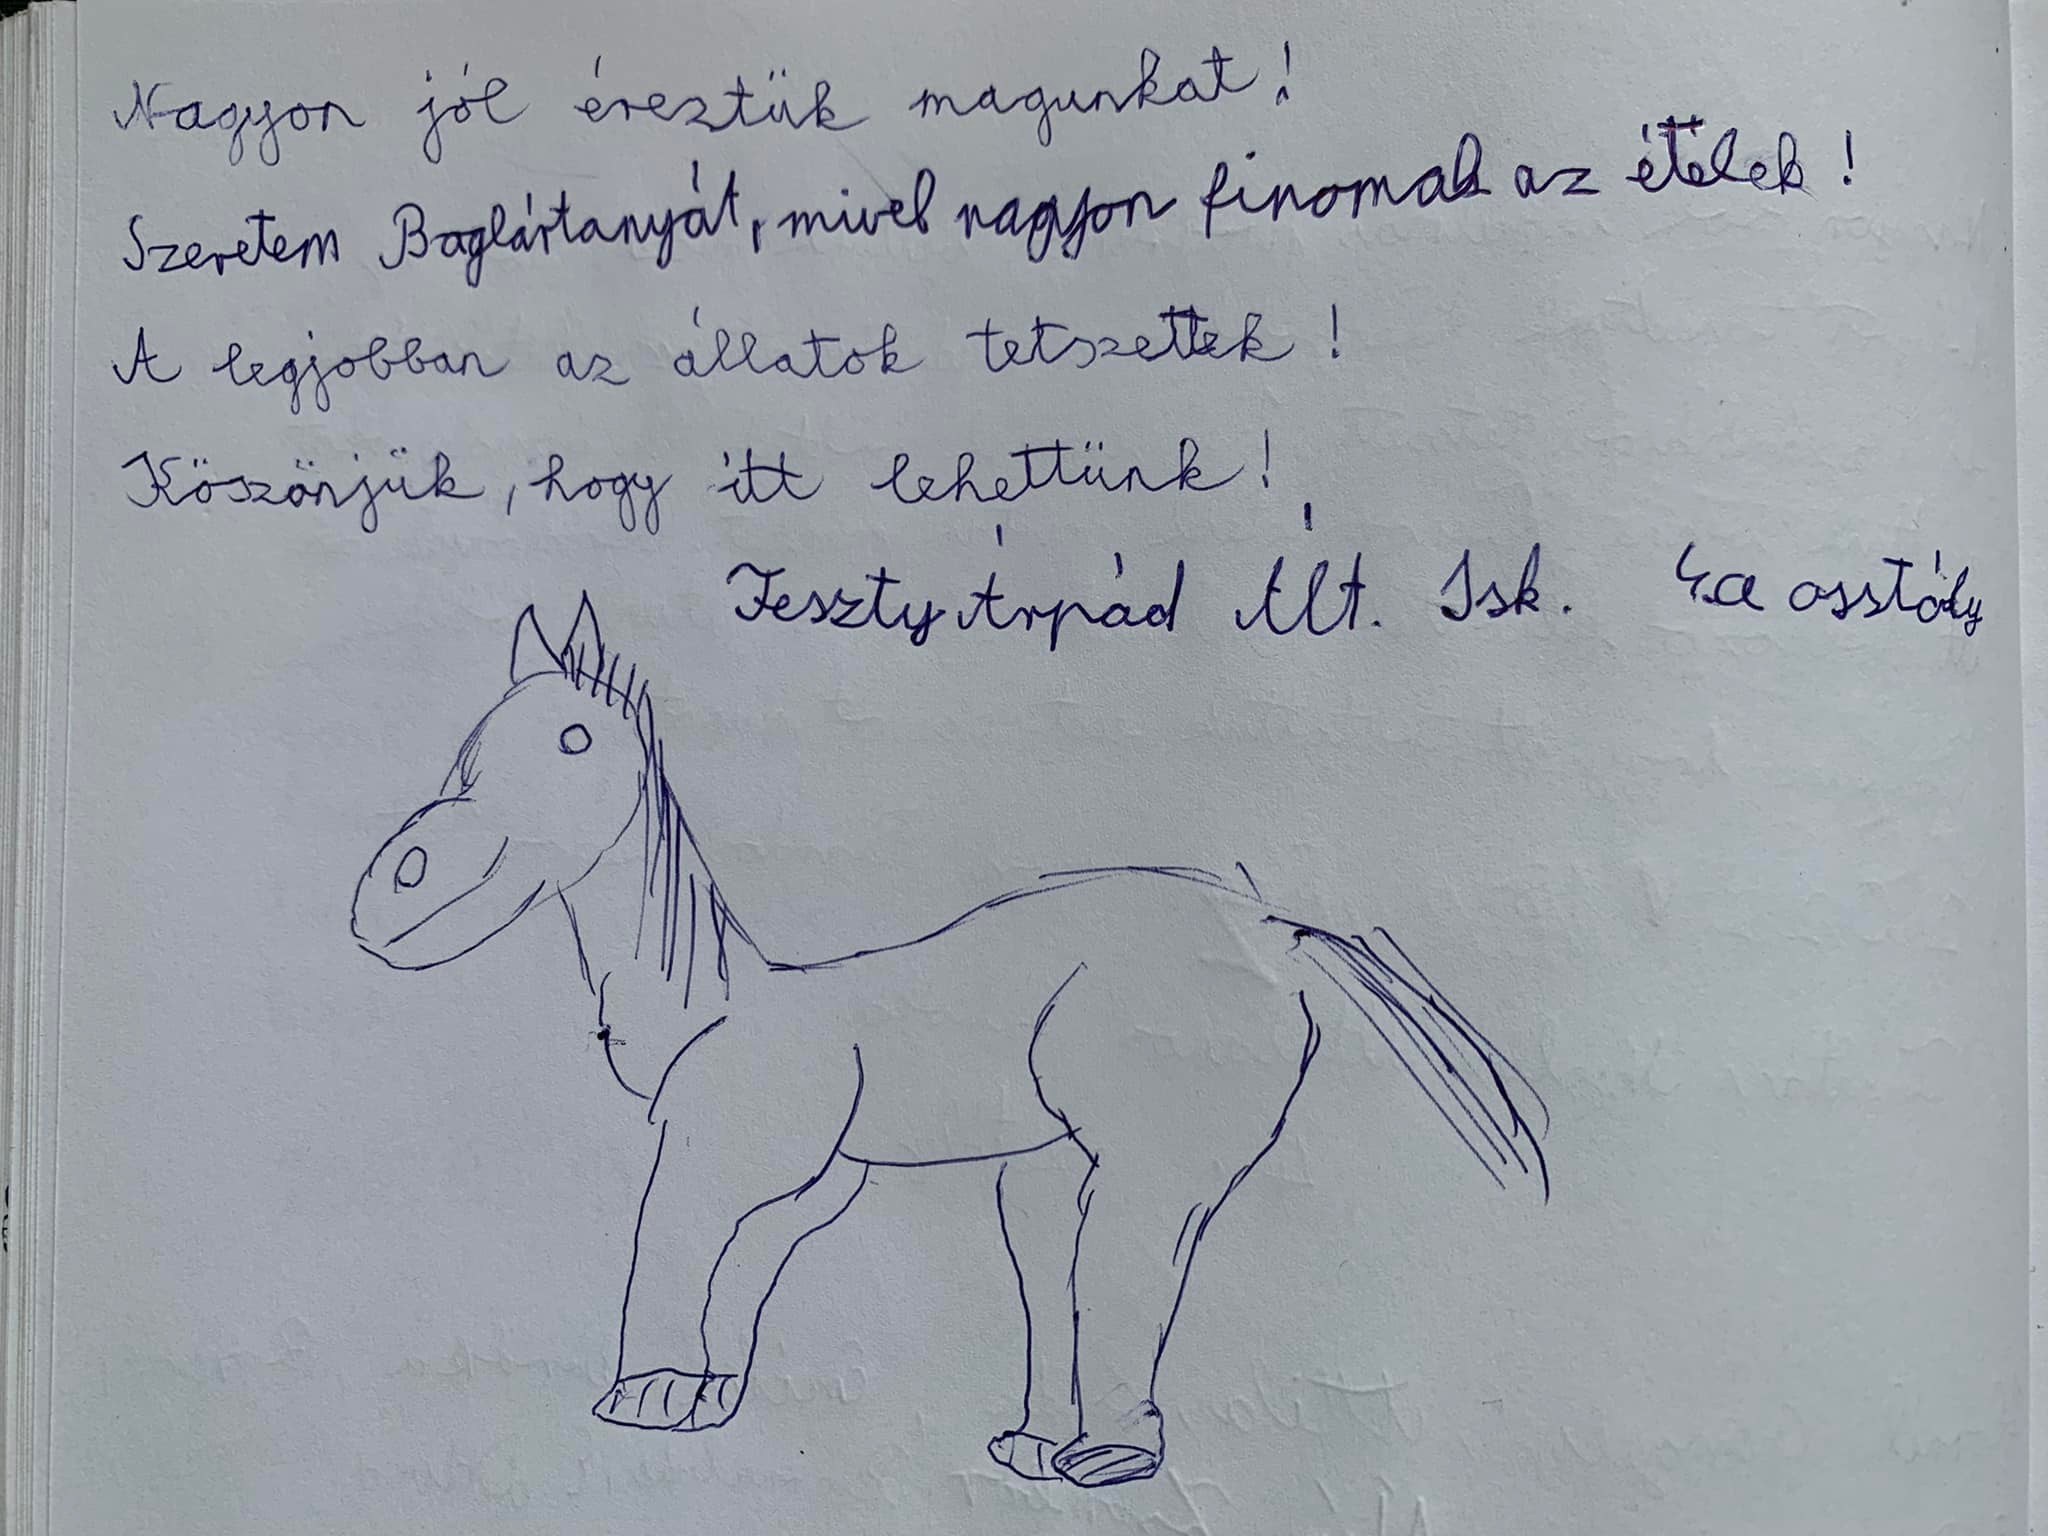 Nagyon jól éreztük magunkat!
Szeretem Boglártanyát, mivel nagyon finomak az ételek!
A legjobban az állatok tetszettek!
Köszönjük, hogy itt lehettünk!
Feszty Árpád Ált. Isk. 4.a osstály